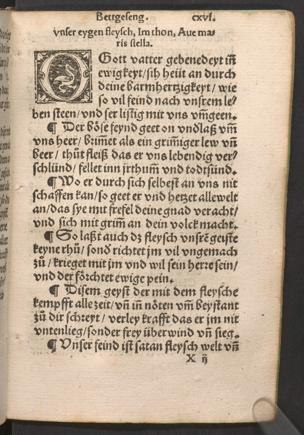 Bettgeseng. cxvi.
vnser eygen fleysch, Im thon, Aue ma-
ris stella.
O Gott vatter gebenedeyt iñ
ewigkeyt/sih heüt an durch
deine barmhertzigkeyt/ wie
so vil feind nach vnsrem le-
ben steen/vnd ser listig mit vns vmgeen.
¶ Der böse feynd geet on vndlaß vm̃
vns heer/ brim̃et als ein grim̃iger lew vñ
beer/ thüt fleiß das er vns lebendig ver-
schlünd/ fellet inn jrthum̃ vnd todtsünd.
¶ Wo er durch sich selbest an vns nit
schaffen kan/so geet er vnd hetzet alle welt
an/das sye mit frefel deine gnad veracht/
vnd sich mit grim̃ an dein volck macht.
¶ So laßt auch dz fleysch vnsrẽ geiste
keyne rhů/ sond̕ richtet jm vil vngemach
zů/ krieget mit jm vnd wil sein herre sein/
vnd der förchtet ewige pein.
¶ Disem geyst der mit dem fleysche
kempfft alle zeit/ vñ iñ nöten vm̃ beystant
zů dir schreyt/ verley krafft das er jm nit
vntenlieg/sonder frey überwind vñ sieg.
¶ Vnser feind ist satan fleysch welt vñ
X ij